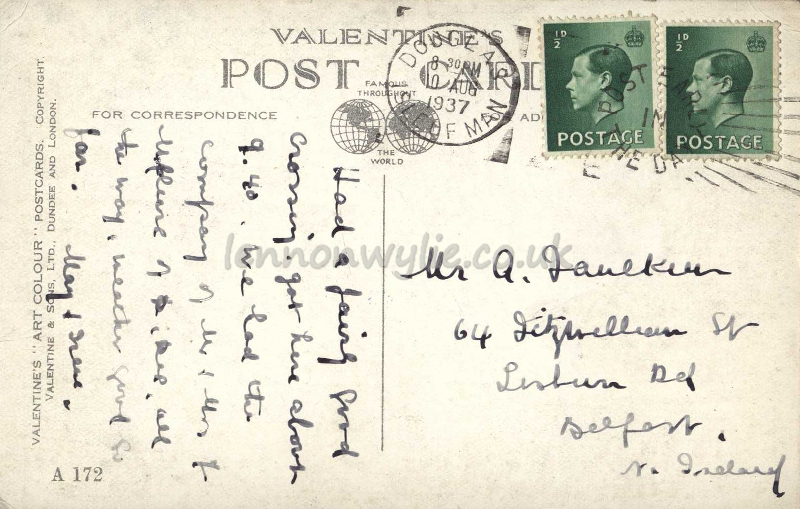 VALENTINE'S
POST CARD
FAMOUS
THROUGHOUT
THE
WORLD
FOR CORRESPONDENCE
DOUGLAS
8 30 PM
10 AUG
1937
ISLE OF MAN
½D
POSTAGE
½D
POSTAGE
POST EARLY
IN
THE DAY
VALENTINE'S "ART COLOUR" POSTCARDS. COPYRIGHT.
VALENTINE & SONS, LTD., DUNDEE AND LONDON.
A 172
Had a fairly good
crossing, got here about
9.40. We had the
company of Mr & Mrs
all
the way, weather good so
far. May & Irene.
Mr A. Faulkner
64 Fitzwilliam St
Lisburn Rd
Belfast.
N. Ireland
lennonwylie.co.uk